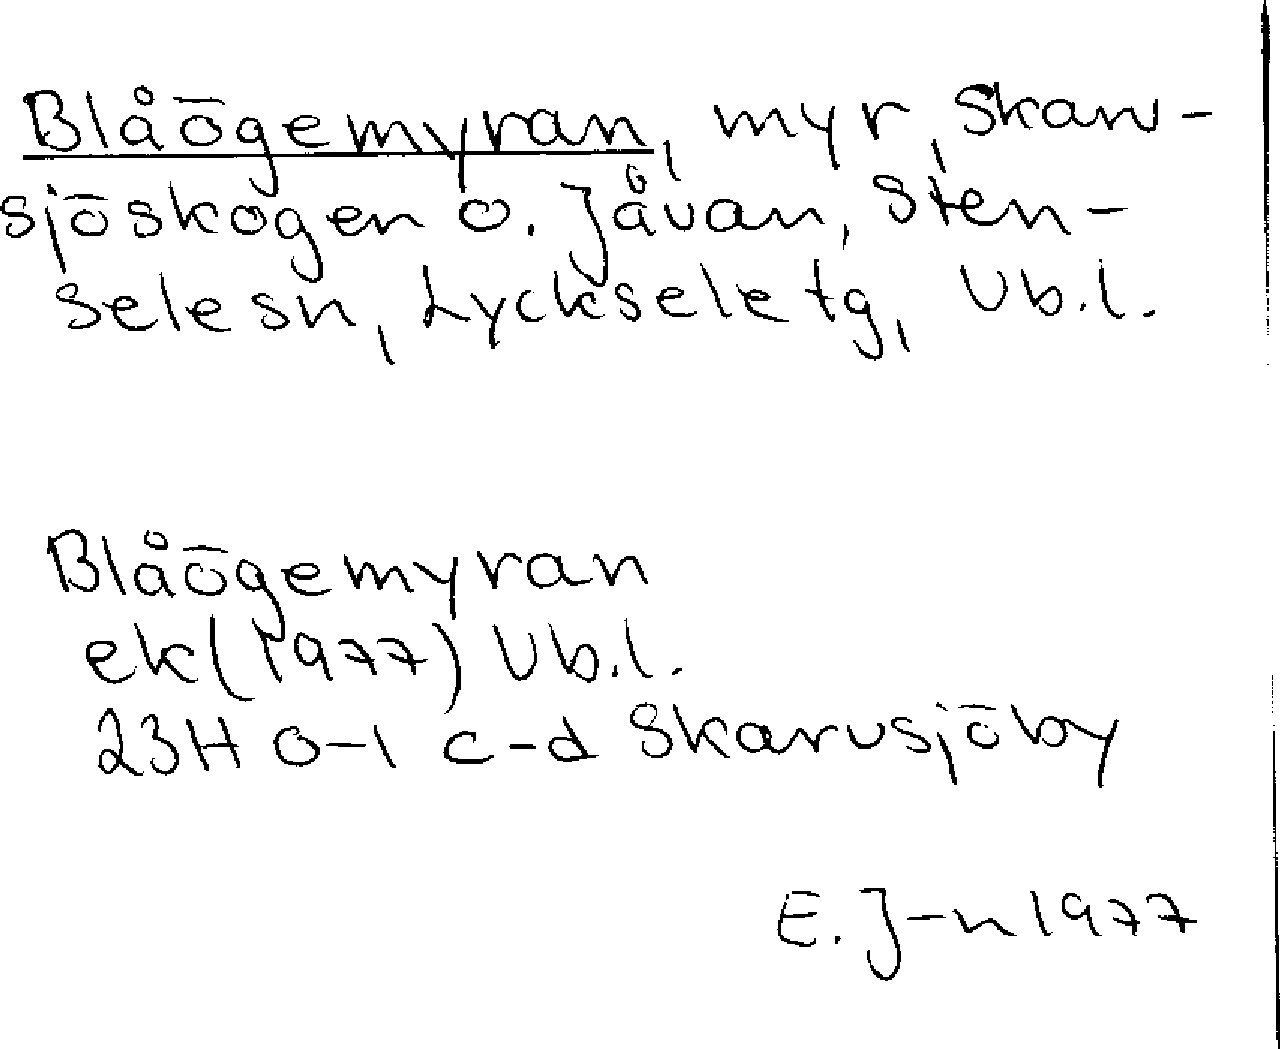 Blåögemyran, myr, Skarv-
sjöskogen o. Jåvan, Sten-
selesn, Lyckseletg, Vb.l.
Blåögemyran
ek(1977) Vb.l.
23H 0-1 c-d Skarvsjöby
E. J-n 1977